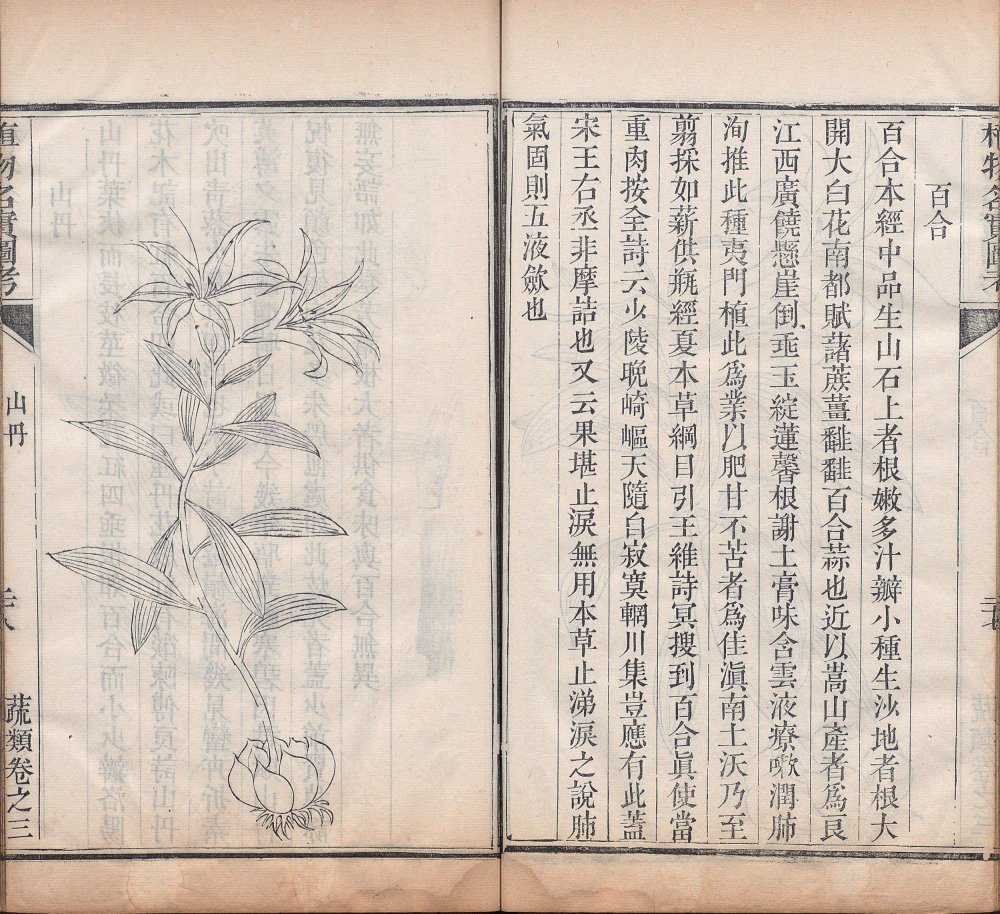 植物名實圖考
二十七
百合
百合本經中品生山石上者根嫩多汁瓣小種生沙地者根大
開大白花南都賦藷蔗薑䪤䪤百合蒜也近以嵩山產者為良
江西廣饒懸崖倒垂玉綻蓮馨根謝土膏味含雲液療嗽潤肺
洵推此種夷門植此為業以肥甘不苦者為佳滇南土沃乃至
翦採如薪供瓶經夏本草綱目引王維詩冥搜到百合眞使當
重肉按全詩云少陵晚崎嶇天隨自寂寞輞川集豈應有此蓋
宋王右丞非摩詰也又云果堪止淚無用本草止涕淚之說肺
氣固則五液斂也
植物名實圖考
山丹
二十八
蔬類卷之三